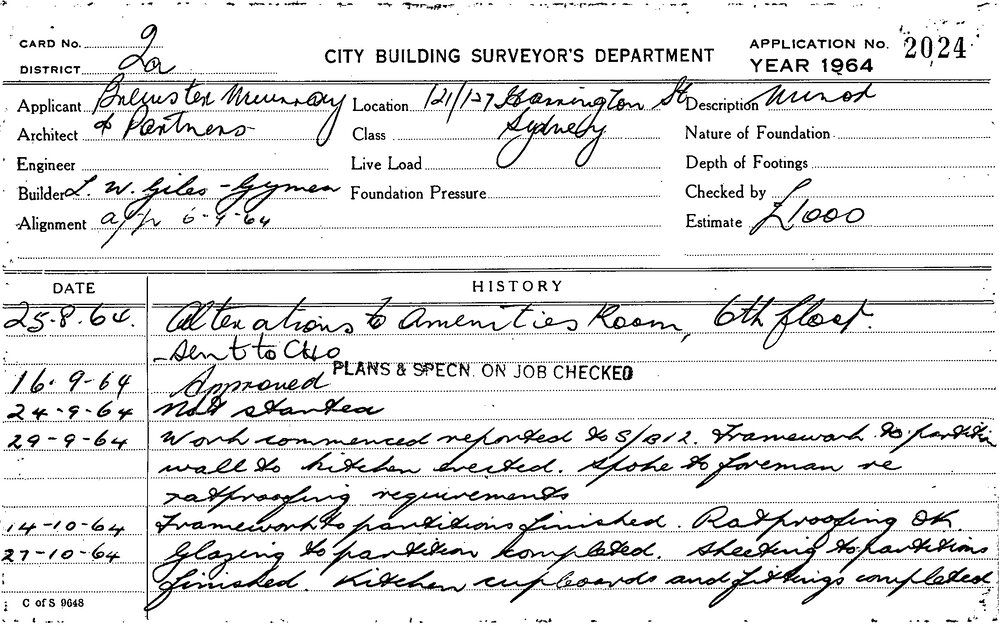 CARD No. 2
CITY BUILDING SURVEYOR'S DEPARTMENT
APPLICATION No. 2024
DISTRICT 2a
YEAR 1964
Applicant Brewster Murray Location 121/127 Harrington St Description Minor
Architect & Partners Class Sydney Nature of Foundation
Engineer Live Load Depth of Footings
Builder L. W. Giles - Gymea Foundation Pressure Checked by
Alignment app 6-9-64 Estimate £1000
DATE HISTORY
25.8.64. Alterations to Amenities Room, 6th floor.
- sent to CHO
PLANS & SPECN. ON JOB CHECKED
16.9-64 Approved
24-9-64 Not started
29-9-64 Work commenced reported to S/B12. Framework to partiti
wall to kitchen erected. Spoke to foreman re
ratproofing requirements
14-10-64 Framework to partitions finished. Ratproofing OK.
27-10-64 Glazing to partition completed. Sheeting to partitions
finished. Kitchen cupboards and fittings completed
C of S 9648